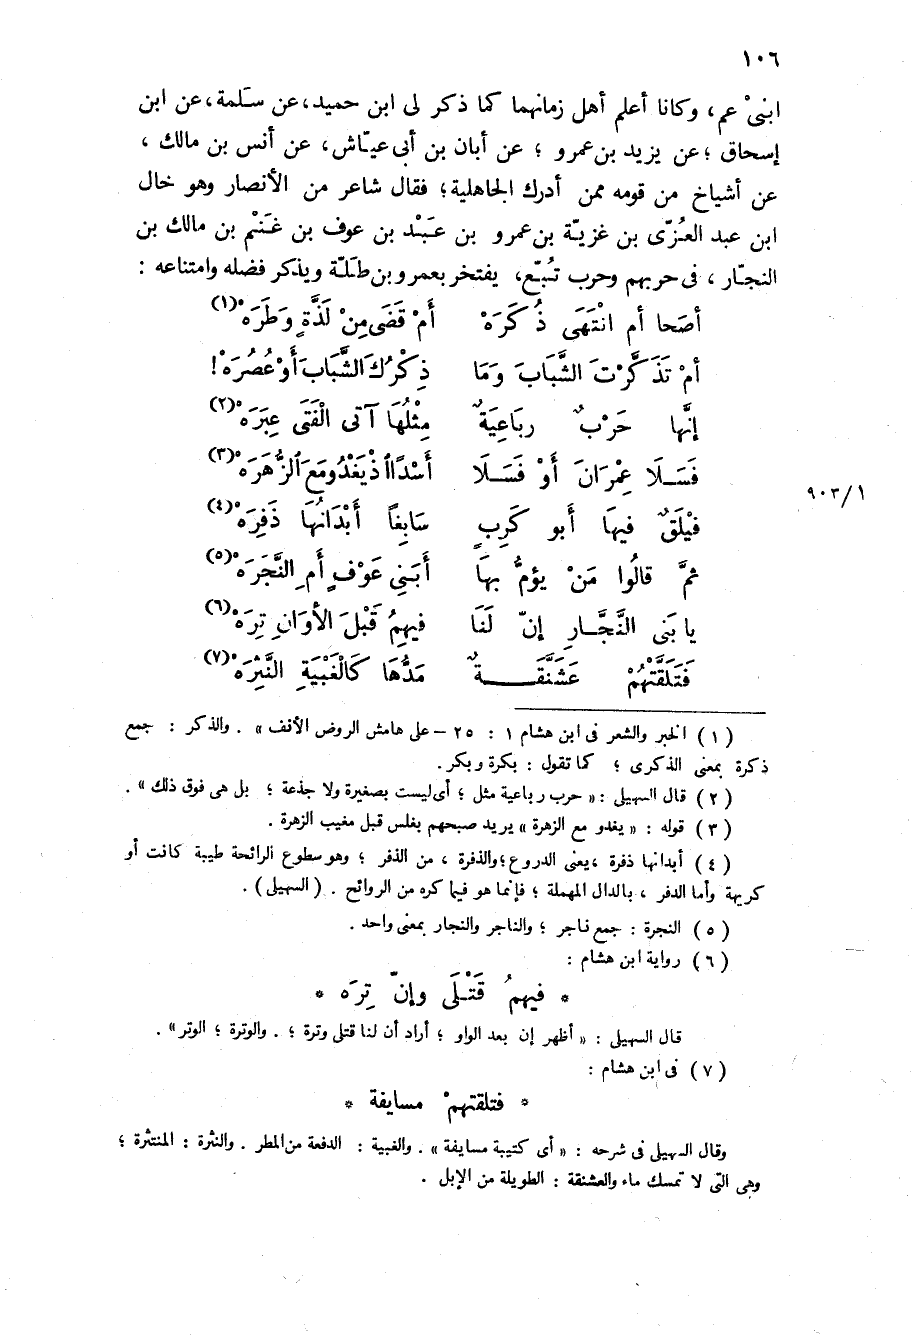 ١٠٦
ابنىْ عم، وكانا أعلم أهل زمانهما كما ذكر لى ابن حميد، عن سلمة، عن ابن
إسحاق ؛ عن يزيد بن عمرو ؛ عن أبان بن أبى عيّاش، عن أنس بن مالك ،
عن أشياخ من قومه ممن أدرك الجاهلية؛ فقال شاعر من الأنصار وهو خال
ابن عبد العُزّى بن غزيّة بن عمرو بن عَبْد بن عوف بن غَنْم بن مالك بن
النجّار ، فى حربهم وحرب تُبَّع، يفتخر بعمرو بن طَلّة ويذكر فضله وامتناعه :
أصَحا أم انْتَهَى ذُكَرَهْ أَمْ قَضَى مِنْ لَذَّةٍ وَطَرَهْ (١)
أمْ تَذَكَّرْتَ الشَّبَابَ وَمَا ذِكْرُكَ الشَّبَابَ أَوْ عُصُرَهْ !
إنَّها حَرْبٌ ربَاعِيَةٌ مِثْلُهَا آتى الْفَتَى عِبَرَهْ (٢)
فَسَلَا عِمْرَانَ أَوْ فَسَلَا أَسْدًا اذْ يَغْدُو مَعَ الزُّهَرَهْ (٣)
٩٠٣/١
فَيْلَقٌ فيهَا أبو كَرِبٍ سَابِغاً أَبْدَانُهَا ذَفِرَهْ (٤)
ثمَّ قالُوا مَنْ يَؤُمُّ بِهَا أَبَنِي عَوْفٍ أم النَّجَرَهْ (٥)
يا بَنى النَّجَّارِ إنّ لَنَا فيهِمُ قَبْلَ الأوَانِ تِرَهْ (٦)
فَتَلَقَّتْهُمْ عَشَنَّقَةٌ مَدُّهَا كَالْغَبْيَةِ النَّثِرَهْ (٧)
(١) الخبر والشعر فى ابن هشام ١ : ٢٥ – على هامش الروض الأنف» . والذكر : جمع
ذكرة بمعنى الذكرى ؛ كما تقول : بكرة وبكر .
(٢) قال السهيلى : « حرب رباعية مثل ؛ أى ليست بصغيرة ولا جذعة ؛ بل هى فوق ذلك » .
(٣) قوله : « يغدو مع الزهرة » يريد صبحهم بغلس قبل مغيب الزهرة .
(٤) أبدانها ذفرة ، يعنى الدروع ؛ والذفرة ، من الذفر ؛ وهو سطوع الرائحة طيبة كانت أو
كريهة وأما الدفر ، بالدال المهملة ؛ فإنما هو فيما كره من الروائح . (السهيلى) .
(٥) النجرة : جمع ناجر ؛ والناجر والنجار بمعنى واحد .
(٦) رواية ابن هشام :
* فيهمُ قَتْلَى وإنّ تِرَه *
قال السهيلى : « أظهر إن بعد الواو ؛ أراد أن لنا قتلى وترة ؛ . والوترة ؛ الوتر» .
(٧) فى ابن هشام :
* فتلقتهمْ مسايفة *
وقال السهيلى فى شرحه : « أى كتيبة مسايفة » . والغبية : الدفعة من المطر . والنثرة : المنتثرة ؛
وهى التى لا تمسك ماء والعشنقة : الطويلة من الإبل .